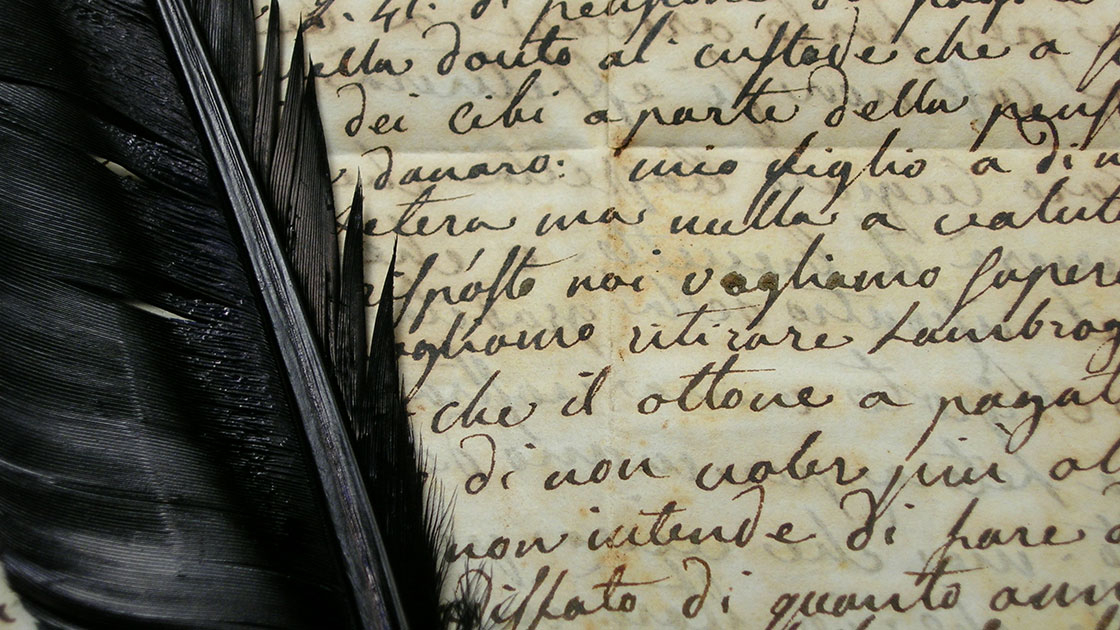 L. 41. di pensione di
ella douto al custode che a
dei cibi a parte della pens
danaro: mio figlio a di
letera ma nulla a valut
risposto noi vogliamo saper
ogliamo ritirare Lambrog
che il ottone a pagat
di non voler piu
non intende di fare d
disfato di quanto ann